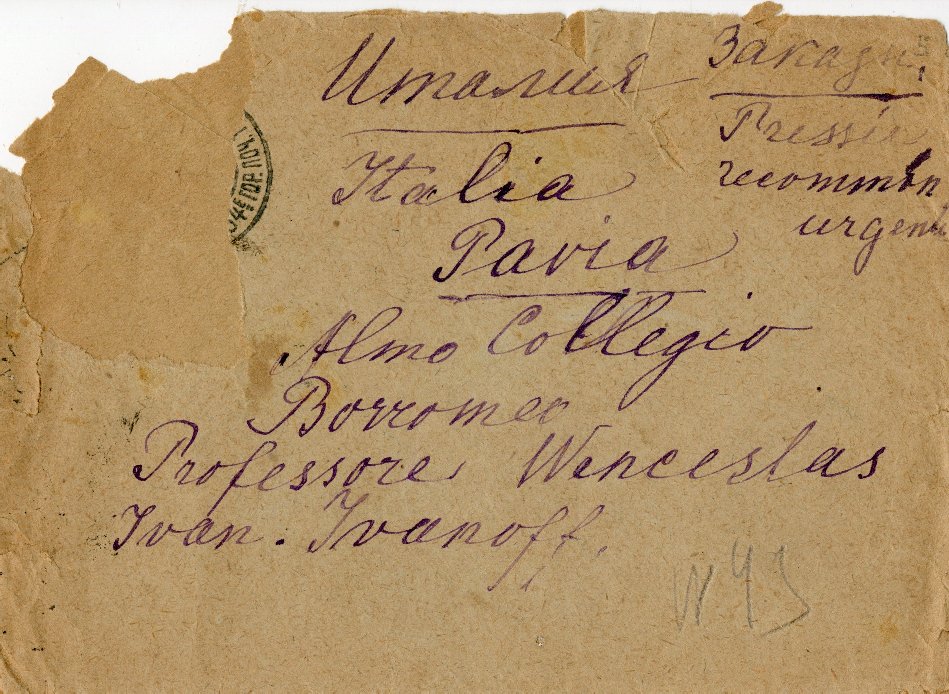 Италия
Заказн.
recomman
urgen
Italia
Pavia
Almo Collegio
Borromeo
Professore Wenceslas
Ivan. Ivanoff.
ГОР.ПОЧ